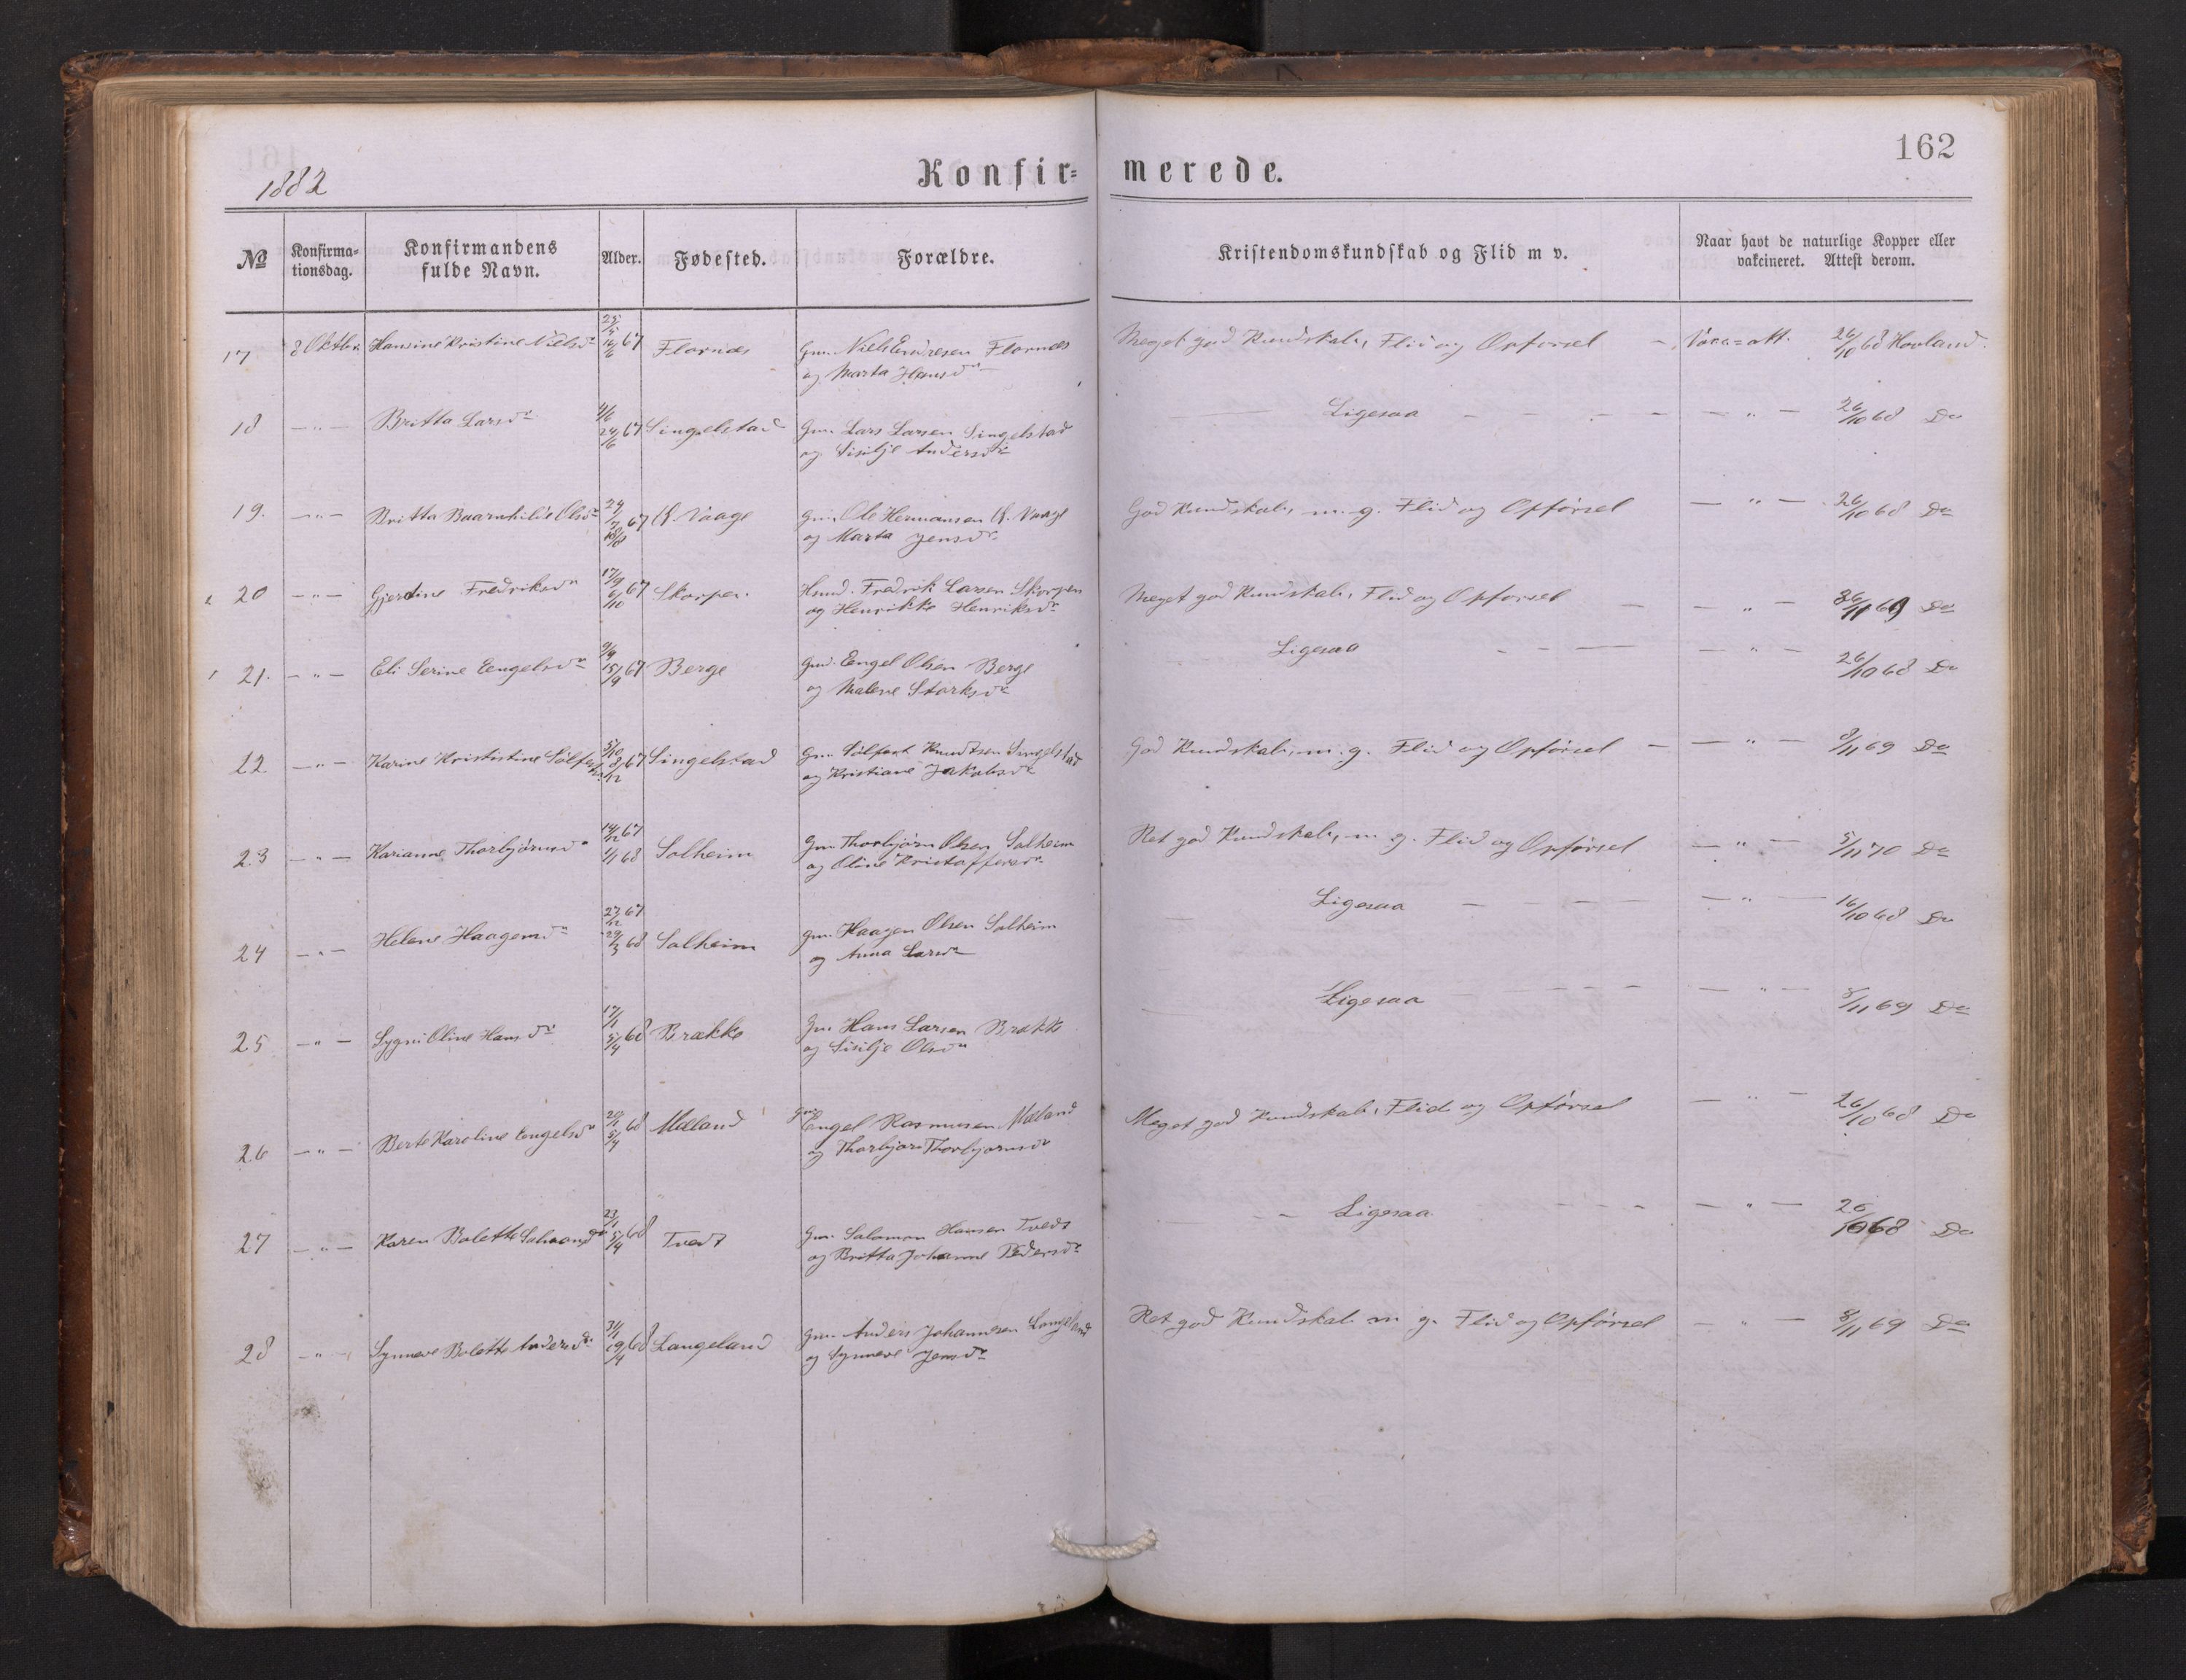 162
1882
Konfir= merede.
№ Konfirma-tionsdag. Konfirmandens fulde Navn. Alder. Fødested. Forældre. Kristendomskundskab og Flid m v. Naar havt de naturlige Kopper eller vakcineret. Attest derom.
17 8 Oktbr. Hansine Kristine Nielsdr 67 Flornes Gm. Niels Endresen Flornes Meget god Kundskab, Flid og Opførsel - Vacc=att. 26/10 68 Hovland.
og Marta Hansdr
18 — „ — Britta Larsdr 24/6 67 Singelstad Gm. Lars Larsen Singelstad Ligesaa — „ — 26/10 68 Do
og Sisilje Andersdr
19. — „ — Britta Baarnhilde Olsdr 67 Vaage Gm. Ole Hermansen Vaage God Kundskab, m. g. Flid og Opførsel — „ — 26/10 68 Do
og Marta Jensdr
20 — „ — Gjerdine Fredriksdr 17/9 6/10 67 Skorpen. Hmd. Fredrik Larsen Skorpen Meget god Kundskab, Flid og Opførsel — „ — 69 Do
og Henrikke Henriksdr
21. — „ — Eli Serine Engelsdr 9/9 15/9 67 Berge Gm. Engel Olsen Berge Ligesaa — „ — 26/10 68 Do
og Malene Storksdr
22 — „ — Karine Krististine 5/10 8/12 67 Singelstad Gm. Sølfest Knudtsen Singelstad God Kundskab, m. g. Flid og Opførsel — „ — 8/11 69 Do
og Kristiane Jakobsdr
23 — „ — Karianne Thorbjørnsdr 14/12 67 1/1 68 Solheim Gm. Thorbjørn Olsen Solheim Ret god Kundskab, m. g. Flid og Opførsel — „ — 5/11 70 Do
og Oline Kristoffersdr
24 — „ — Helene Haagensdr 27/12 67 29/3 68 Solheim Gm. Haagen Olsen Solheim Ligesaa — „ — 16/10 68 Do
og Anna Larsdr
25 — „ — Sygni Oline Hansdr 17/1 5/4 68 Brække Gm. Hans Larsen Brække Ligesaa — „ — 8/11 69 Do
og Sisilje Olsdr
26 — „ — Berte Karoline Engelsdr 5/4 68 Mæland Gm. Engel Rasmusen Mæland Meget god Kundskab, Flid og Opførsel — „ — 26/10 68 Do
og Thorbjør Thorbjørnsdr
27 — „ — Karen Bolette Salomonsdr 23/1 5/4 68 Tvedt Gm. Salomon Hansen Tvedt Ligesaa — „ — 26/10 68 Do
og Britta Johanne Pedersdr
28 — „ — Synneve Bolette Andersdr 31/1 19/4 68 Langeland Gm. Anders Johannesen Langeland Ret god Kundskab m g. Flid og Opførsel — „ — 8/11 69 Do
og Synneve Jensdr